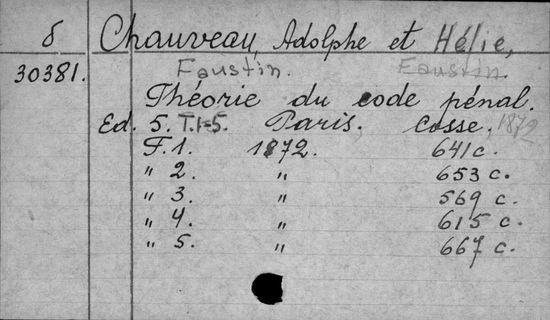 δ Chauveau, Adolphe et Hélie,
30381. Faustin. Faustin.
Théorie du code pénal.
Ed. 5. T.1-5. Paris, Cosse, 1872
T.1. 1872. 641 c.
" 2. " 653 c.
" 3. " 569 c.
" 4. " 615 c.
" 5. " 667 c.